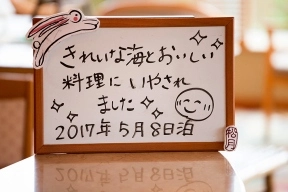 きれいな海とおいしい
料理にいやされ
ました
2017年5月8日泊